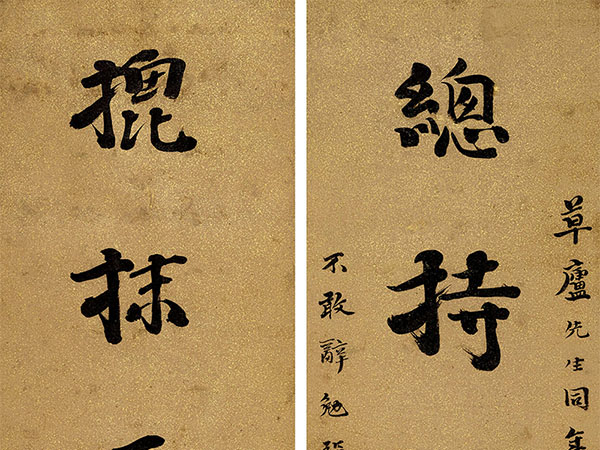 草廬先生同年
總持
不敢辭勉
抹